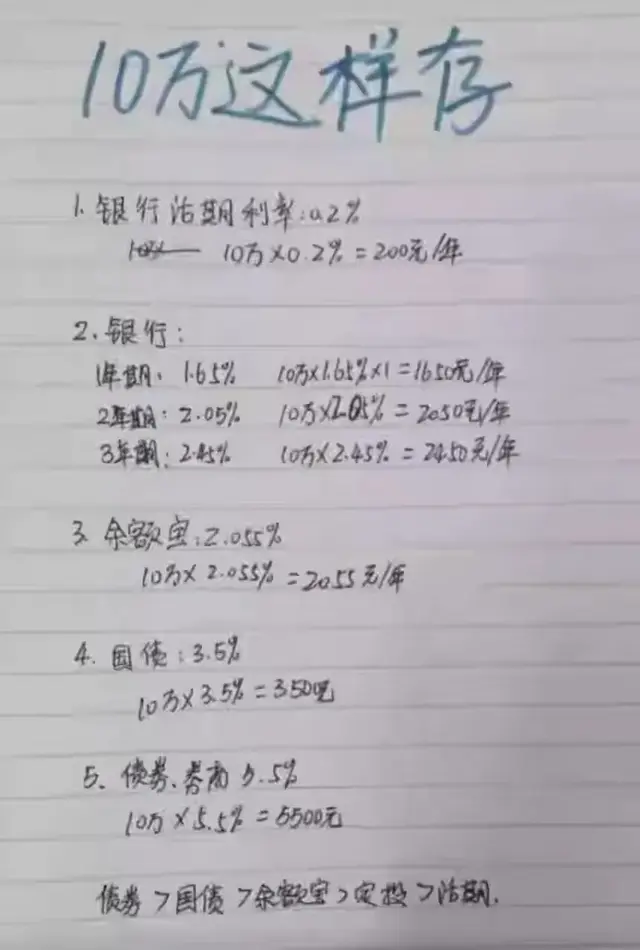 10万这样存
1. 银行活期利率:0.2%
10万×0.2%=200元/年
2. 银行:
1年期: 1.65% 10万×1.65%×1=1650元/年
2年期: 2.05% 10万×2.05%=2050元/年
3年期: 2.45% 10万×2.45%=2450元/年
3. 余额宝:2.055%
10万×2.055%=2055元/年
4. 国债:3.5%
10万×3.5%=3500元
5. 债券、券商 5.5%
10万×5.5%=5500元
债券>国债>余额宝>定投>活期.